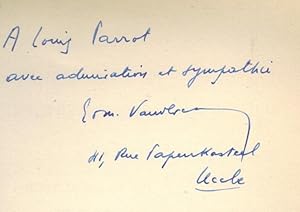 A Louis Parrot
avec admiration et sympathie
Edm. Vandercammen
41, Rue Papenkasteel
Uccle